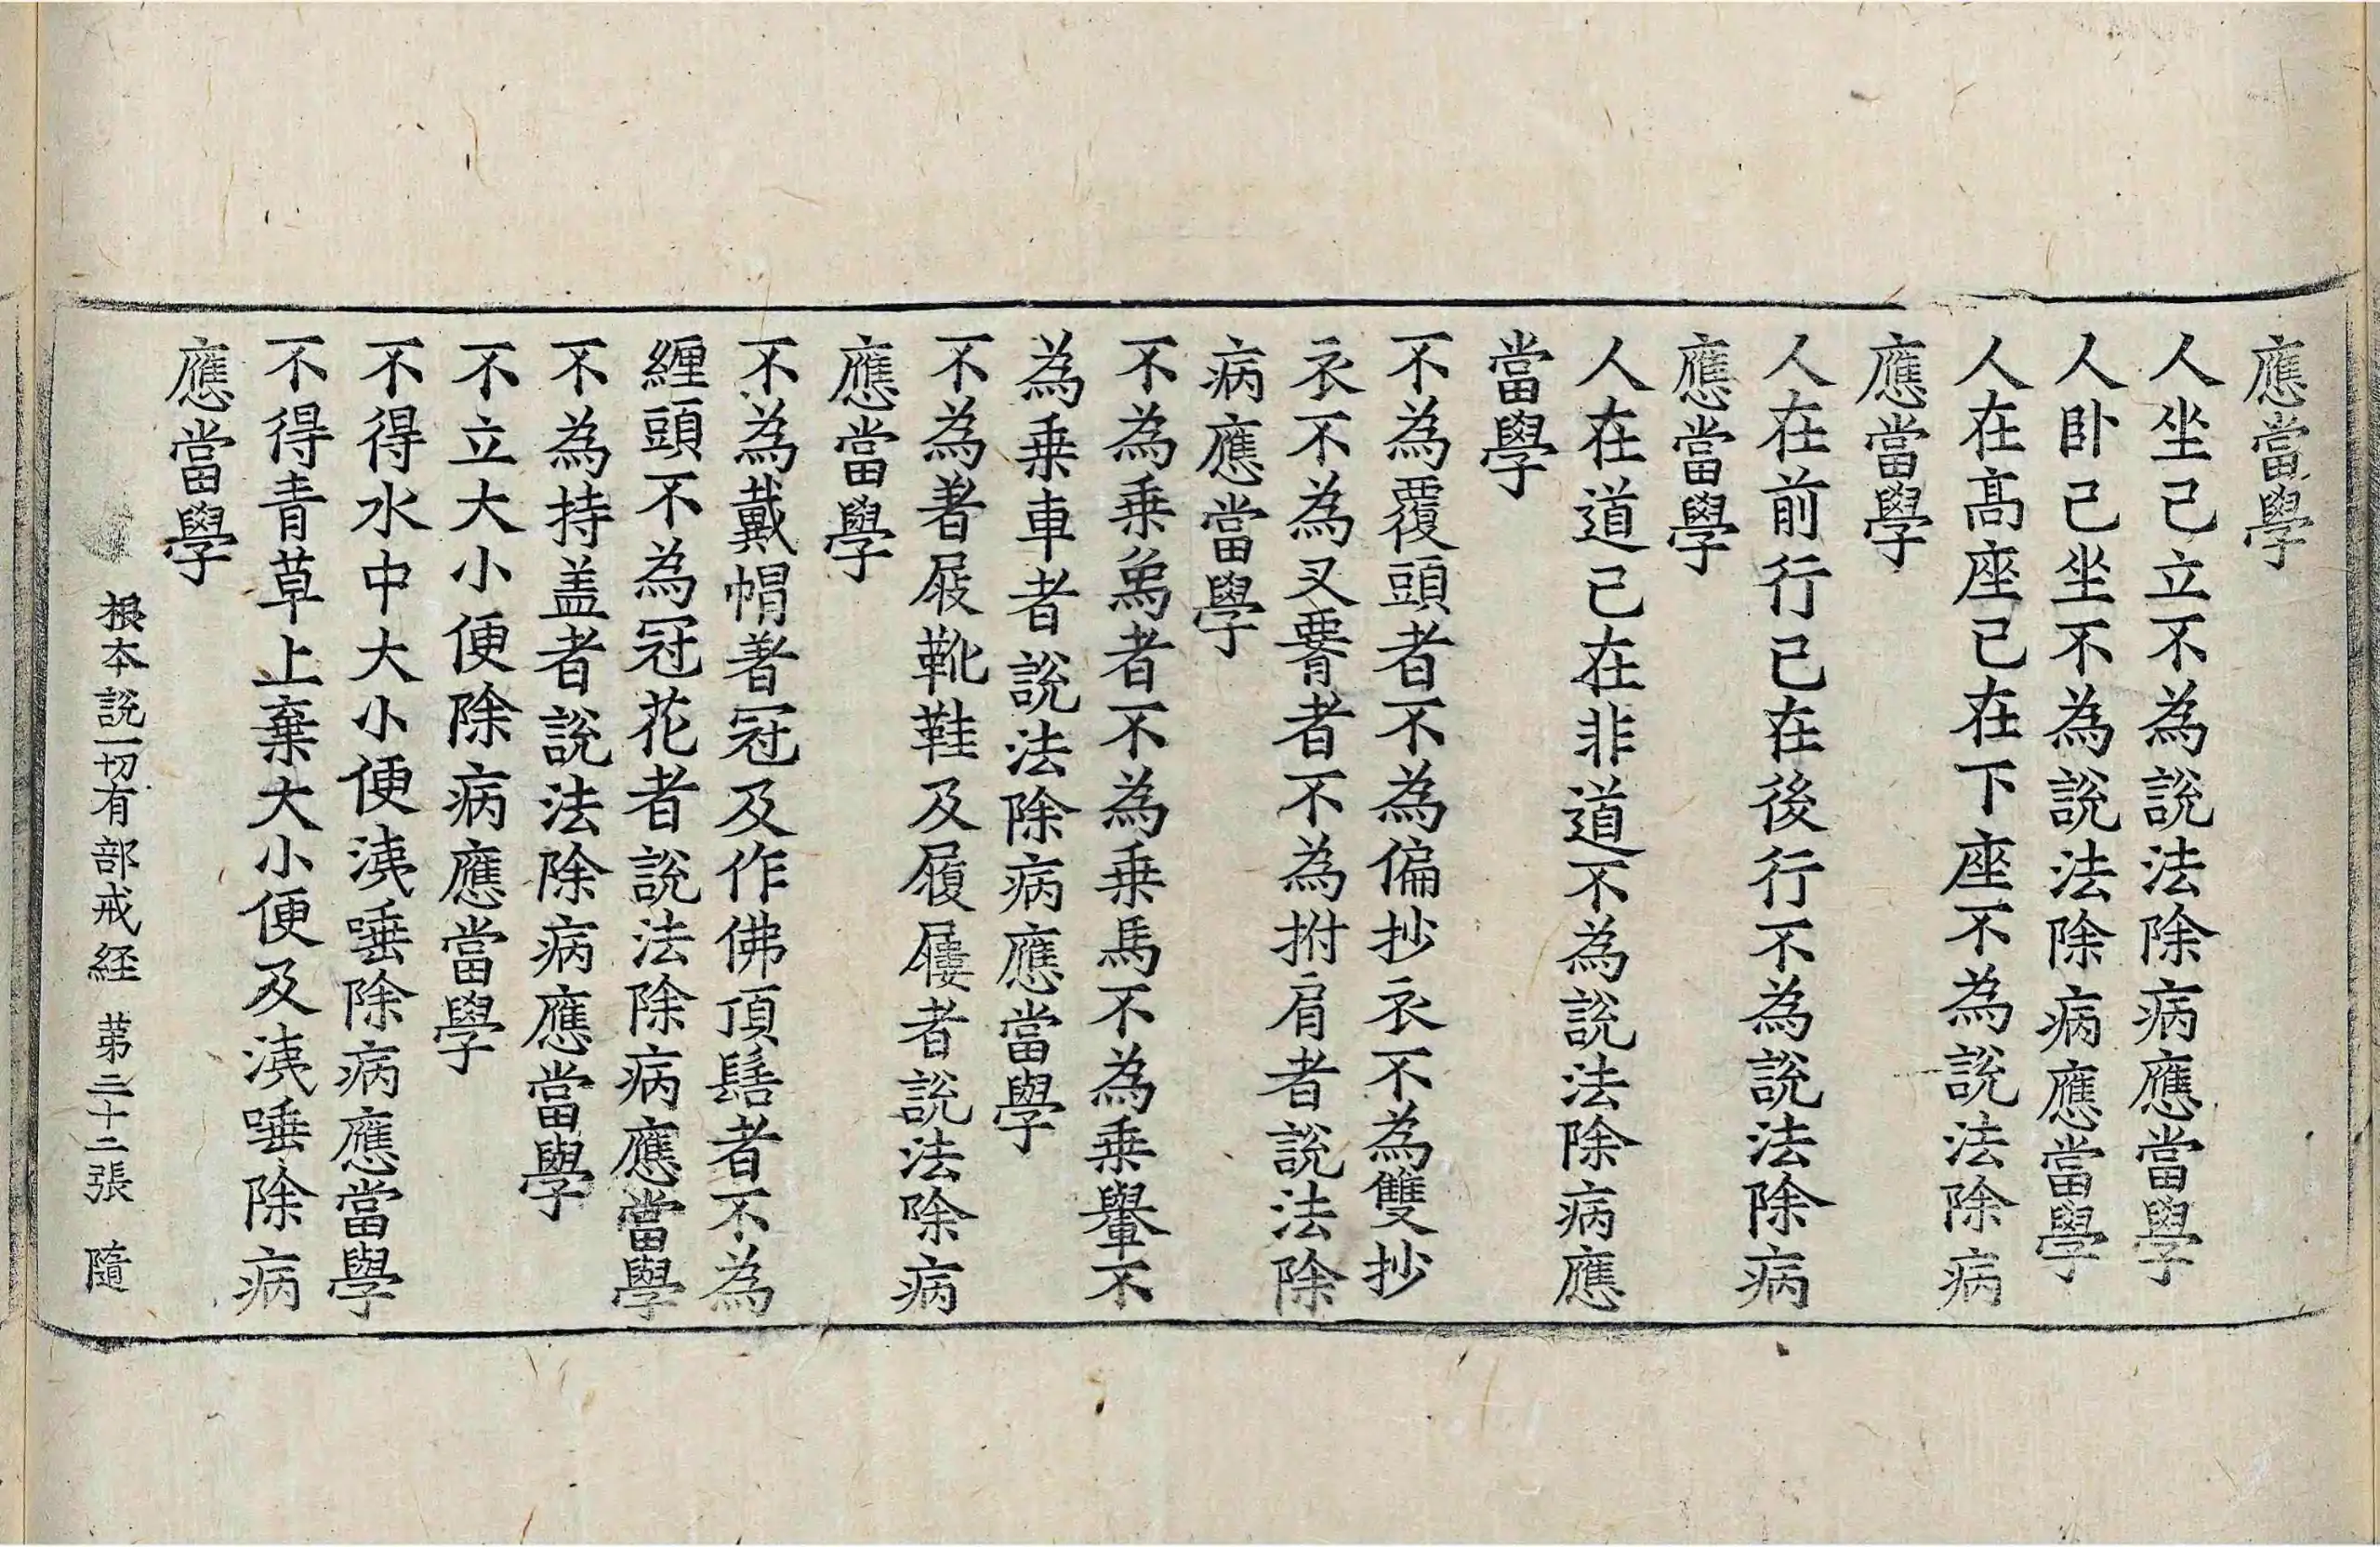 應當學
人坐己立不為說法除病應當學
人卧己坐不為說法除病應當學
人在髙座己在下座不為說法除病
應當學
人在前行己在後行不為說法除病
應當學
人在道己在非道不為說法除病應
當學
不為覆頭者不為偏抄衣不為雙抄
衣不為叉𦝫者不為拊肩者說法除
病應當學
不為乗象者不為乗馬不為乗轝不
為乗車者說法除病應當學
不為著屐靴鞋及履屨者說法除病
應當學
不為戴帽著冠及作佛頂髻者不為
纒頭不為冠花者說法除病應當學
不為持盖者說法除病應當學
不立大小便除病應當學
不得水中大小便洟唾除病應當學
不得青草上棄大小便及洟唾除病
應當學
根本說一切有部戒経 苐二十二張 隨